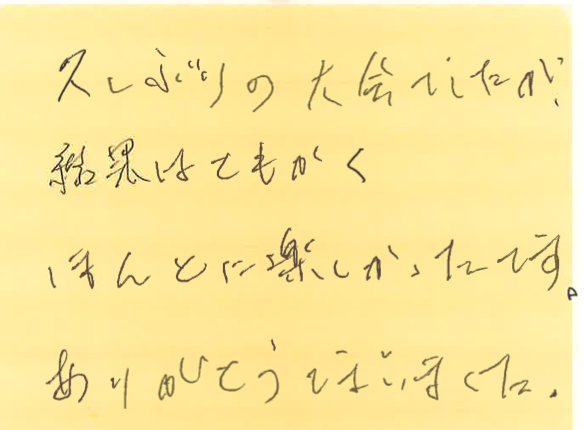 久しぶりの大会でしたが、
結果はともかく
ほんとに楽しかったです。
ありがとうございました.